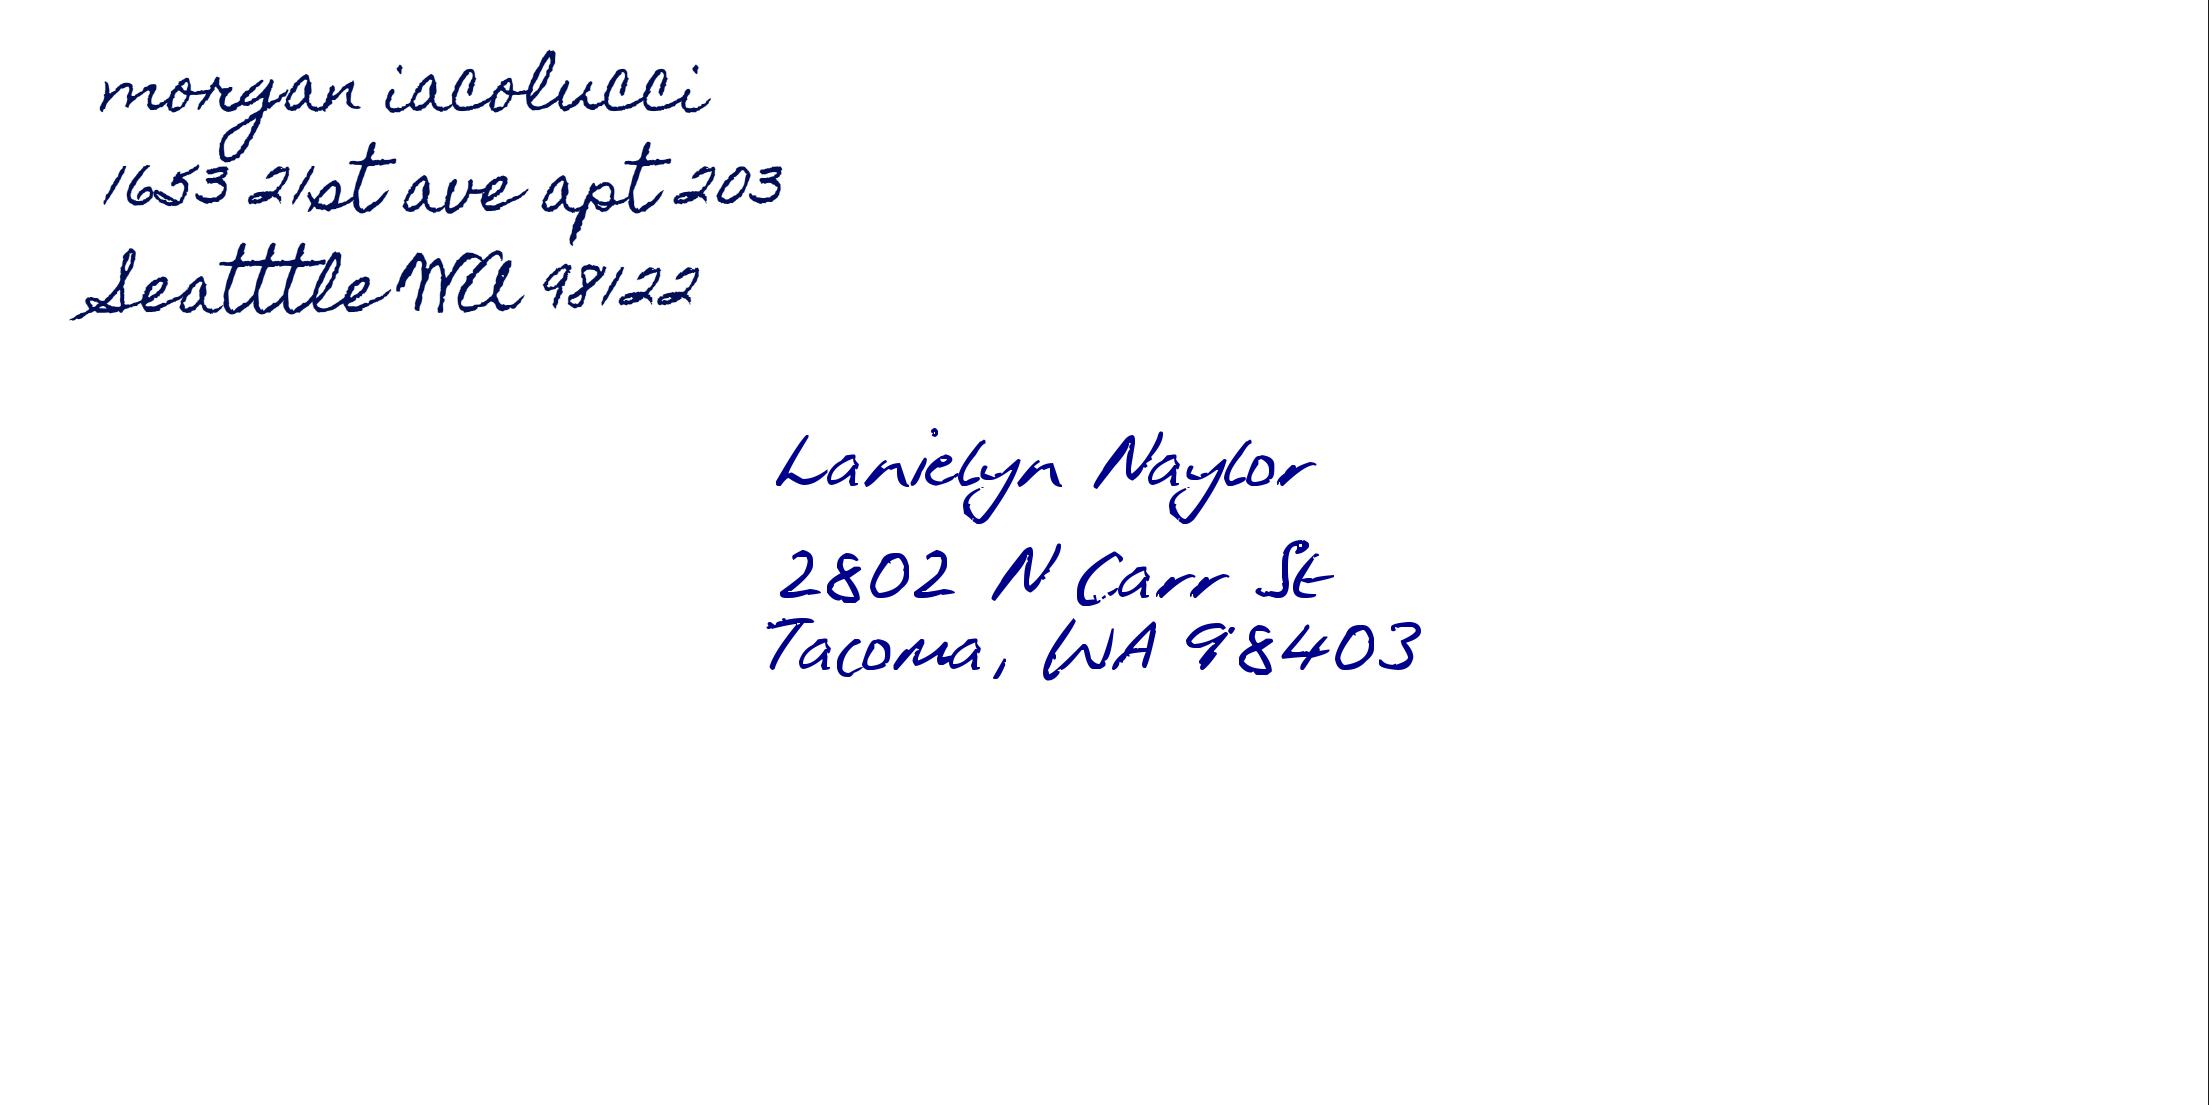 morgan iacolucci
1653 21st ave apt 203
Seatttle WA 98122
Lanielyn Naylor
2802 N Carr St
Tacoma, WA 98403